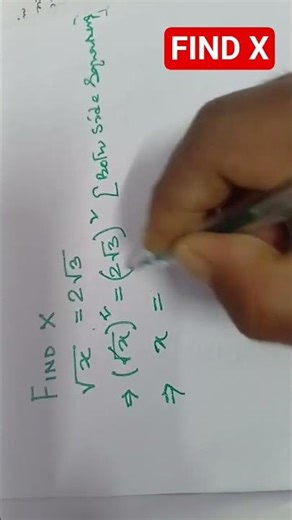 FIND X
FIND X
√x = 2√3
⇒ (√x)² = (2√3)² [Both side squaring]
⇒ x =